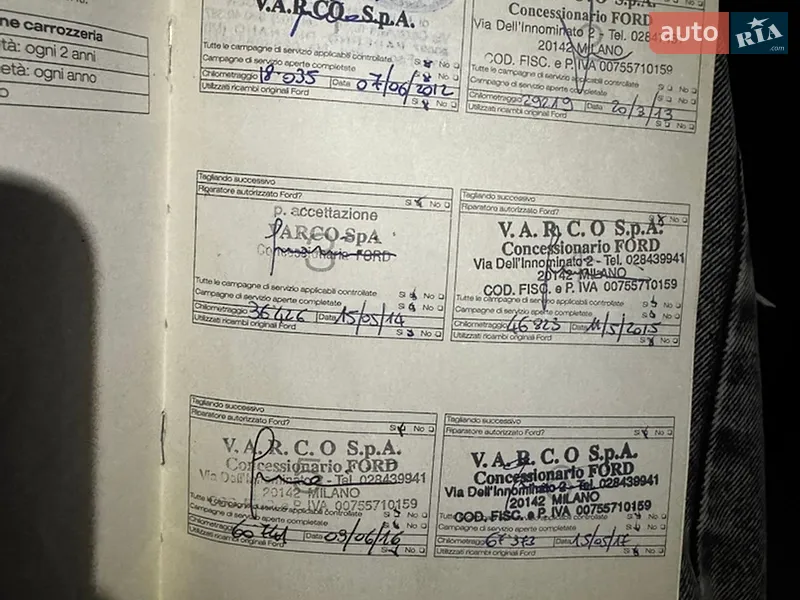 ne carrozzeria
età: ogni 2 anni
età: ogni anno
o
V.A.R.C.O S.p.A.
Tutte le campagne di servizio applicabili controllate
Sì No
Campagne di servizio aperte completate
Sì No
Chilometraggio 18035 Data 07/06/2012
Utilizzati ricambi originali Ford Sì No
S.p.A.
Concessionario FORD
Via Dell'Innominato 2 - Tel.
20142 MILANO
COD. FISC. e P. IVA 00755710159
Tutte le campagne di servizio applicabili controllate
Sì No
Campagne di servizio aperte completate
Sì No
Chilometraggio 29219 Data 20/3/13
Utilizzati ricambi originali Ford Sì No
auto RIA .com
Tagliando successivo
Riparatore autorizzato Ford?
Sì No
p. accettazione
VARCO SpA
Concessionaria FORD
3
Tutte le campagne di servizio applicabili controllate
Sì No
Campagne di servizio aperte completate
Sì No
Chilometraggio 36426 Data 15/05/14
Utilizzati ricambi originali Ford Sì No
Tagliando successivo
Riparatore autorizzato Ford?
No
V. A. R. C. O S.p.A.
Concessionario FORD
Via Dell'Innominato 2 - Tel. 028439941
20142 MILANO
COD. FISC. e P. IVA 00755710159
Tutte le campagne di servizio applicabili controllate
Sì No
Campagne di servizio aperte completate
Sì No
Chilometraggio 46823 Data 11/5/2015
Utilizzati ricambi originali Ford Sì No
Tagliando successivo
Riparatore autorizzato Ford?
Sì No
V. A. R. C. O S.p.A.
Concessionario FORD
Via Dell'Innominato 2 - Tel. 028439941
20142 MILANO
e P. IVA 00755710159
Tutte le campagne di servizio applicabili controllate
Sì No
Campagne di servizio aperte completate
Sì No
Chilometraggio 60741 Data 09/06/16
Utilizzati ricambi originali Ford Sì No
Tagliando successivo
Riparatore autorizzato Ford?
Sì No
V. A. R. C. O S.p.A.
Concessionario FORD
Via Dell'Innominato 2 - Tel. 028439941
20142 MILANO
COD. FISC. e P. IVA 00755710159
Tutte le
Sì No
Campagne di servizio aperte completate
Sì No
Chilometraggio 67373 Data 15/05/17
Utilizzati ricambi originali Ford Sì No